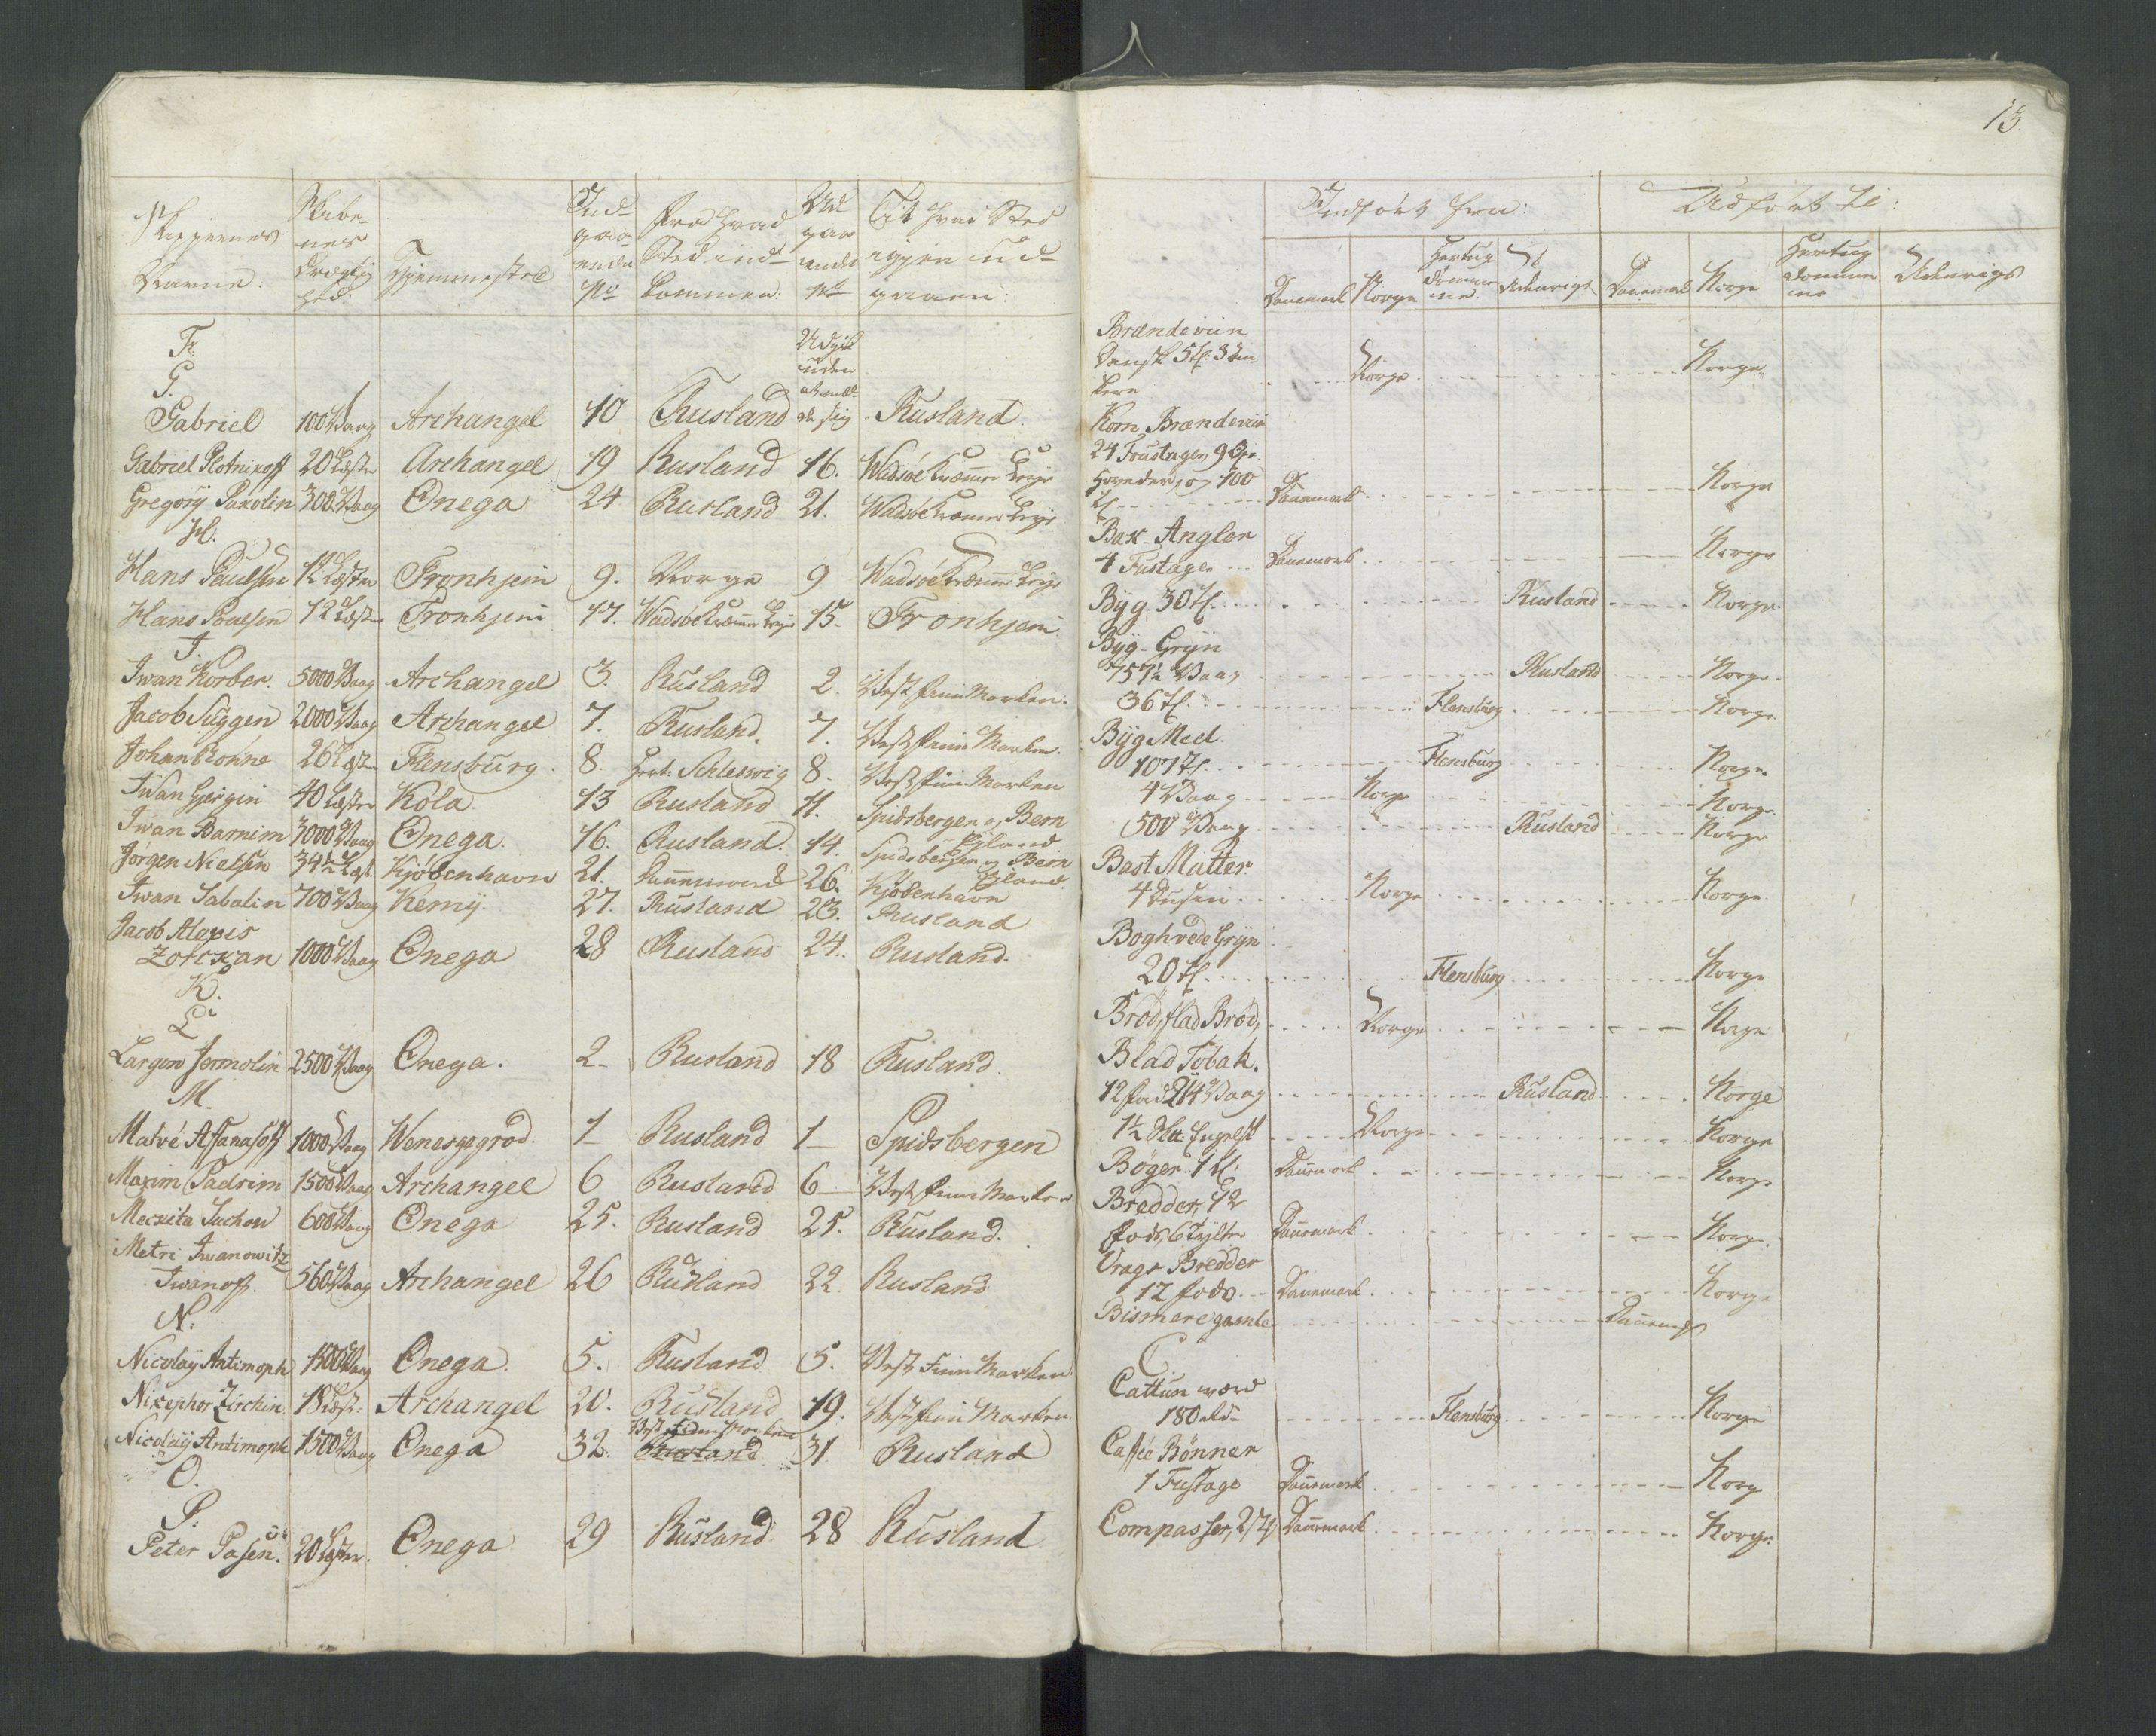 Skippernes Navne: | Skibenes Drægtighed: | Hjemmested | Indgaaende No | Fra hvad Sted indkommen: | Udgaaende No | Til hvad Sted igjen udgaaen:
F.
G.
Gabriel | 100 Vaag | Archangel | 10 | Rusland | Udgik uden at melde sig | Rusland
Gabriel Plotnikoff | 20 Læster | Archangel | 19 | Rusland | 16. | Wadsöe Kræmmer Leye
Gregorÿ Paxolin | 300 Vaag | Onega | 24 | Rusland | 21. | Wadsöe Kræmmer Leye
H.
Hans Poulsen | 12 Læster | Tronhjem | 9. | Norge | 9 | Wadsöe Kræmmer Leye
Hans Poulsen | 12 Læster | Tronhjem | 17. | Wadsöe Kræmmer Leye | 15. | Tronhjem
J.
Iwan Korber. | 5000 Vaag | Archangel | 3. | Rusland | 2. | Vest Finn Marken.
Jacob Suggen | 2000 Vaag | Archangel | 7. | Rusland. | 7. | Vest Finn Marken.
Johan Rönne | 26 Læster | Flensburg. | 8. | Hert: Schleswig | 8. | Vest Finn Marken
Iwan Gjergin | 40 Læster | Kola. | 13 | Rusland | 11. | Spidsbergen og Bern Eyland
Iwan Barnim | 3000 Vaag | Onega. | 16. | Rusland | 14. | Spidsbergen og Bern Eyland.
Jørgen Nielsen | 34½ Læst. | Kjöbenhavn | 21. | Dannemark | 26. | Kjöbenhavn
Iwan Sabalin | 700 Vaag | Kemij. | 27. | Rusland | 23. | Rusland
Jacob Alexis
Zotckan | 1000 Vaag | Onega | 28 | Rusland | 24.. | Rusland.
K.
L.
Largow Jermolin | 2500 Vaag | Onega. | 2- | Rusland | 18 | Rusland.
M.
Matvé Affanasoff | 1000 Vaag | Wenesgegrod. | 1- | Rusland | 1- | Spidsbergen
Maxim Padrim | 1500 Vaag | Archangel | 6 | Rusland | 6- | Vest Finn Marken
Mecxita Juchow | 600 Vaag | Onega | 25. | Rusland | 25. | Rusland.
Metri Iwanowitz
Iwanoff. | 560 Vaag | Archangel | 26 | Rusland | 22. | Rusland.
N.
Nicolaÿ Antimoph | 1500 Vaag | Onega. | 5. | Rusland | 5. | Vest Finn Marken
Nicephor Zirchin. | 18 Læst. | Archangel | 20. | Rusland | 19. | Vest Finn Marken
Nicolaÿ Antimoph | 1500 Vaag | Onega | 32. | Vest Finn Marken Rusland | 31 | Rusland
O.
P.
Peter Pasen. | 20 Læster. | Onega | 29 | Rusland | 28 | Rusland
13.
Indfört fra: | Udfört til:
Danemark | Norge | Hertugdömmene | Udenrigs | Danemark | Norge | Hertugdömmene | Udenrigs
Brændeviin
Dansk 5 ℔: 3 An-
kere | Norge | Norge.
Korn Brændeviin
24 Foustager, 9 Ox-
hoveder, og 700
℔ | Danemark | Norge
Bax-Angler
4 Fustage | Danemark | Norge
Byg. 30 ℔. | Rusland | Norge.
Byg-Gryn
757½ Vaag | Rusland | Norge.
36 ℔. | Flensburg | Norge.
Byg Meel.
107 ℔. | Flensburg | Norge.
4 Vaag | Norge | Norge
500 Vaag | Rusland | Norge
Bast Matter.
4 Dusin | Norge | Norge
Boghvede Gryn
20 ℔. | Flensburg | Norge
Bröd, flad Bröd, | Norge | Norge
Blad Tobak.
12 Fad 214 Vaag | Rusland | Norge
1½ Engelsk | Norge | Norge
Böger. 1 ℔: | Danemark | Norge
Bredder, 12
fods, 6 Tylter | Danemark | Norge.
Vrags Bredder
12 fods | Danemark | Norge
Bismere gamle | Danemark
C
Cattun værd
180 Rd | Flensburg | Norge
Caffée Bönner
1 Fustage | Danemark | Norge
Compasser, 2 | Danemark | Norge.